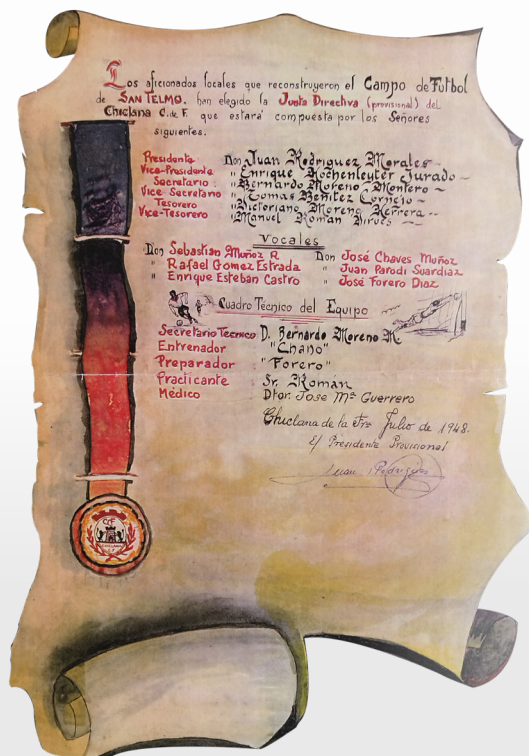 Los aficionados locales que reconstruyeron el Campo de Futbol
de SAN TELMO, han elegido la Junta Directiva (provisional) del
Chiclana C. de F. que estará compuesta por los Señores
siguientes.
Presidente Don Juan Rodriguez Morales
Vice-Presidente " Enrique Hochenleyter Jurado
Secretario " Bernardo Moreno Montero
Vice Secretario " Tomas Benitez Cornejo
Tesorero " Victoriano Moreno Herrera
Vice-Tesorero " Manuel Roman Virues
Vocales
Don Sebastian Muñoz R Don José Chaves Muñoz
" Rafael Gomez Estrada " Juan Parodi Suardiaz
" Enrique Esteban Castro " José Forero Diaz
Cuadro Tecnico del Equipo
Secretario Tecnico D. Bernardo Moreno M.
Entrenador "Chano"
Preparador "Forero"
Practicante Sr. Román
Médico Dtor. Jose Mª Guerrero
Chiclana de la Fra Julio de 1948.
El Presidente Provisional
Juan Rodriguez
CCF
CHICLANA